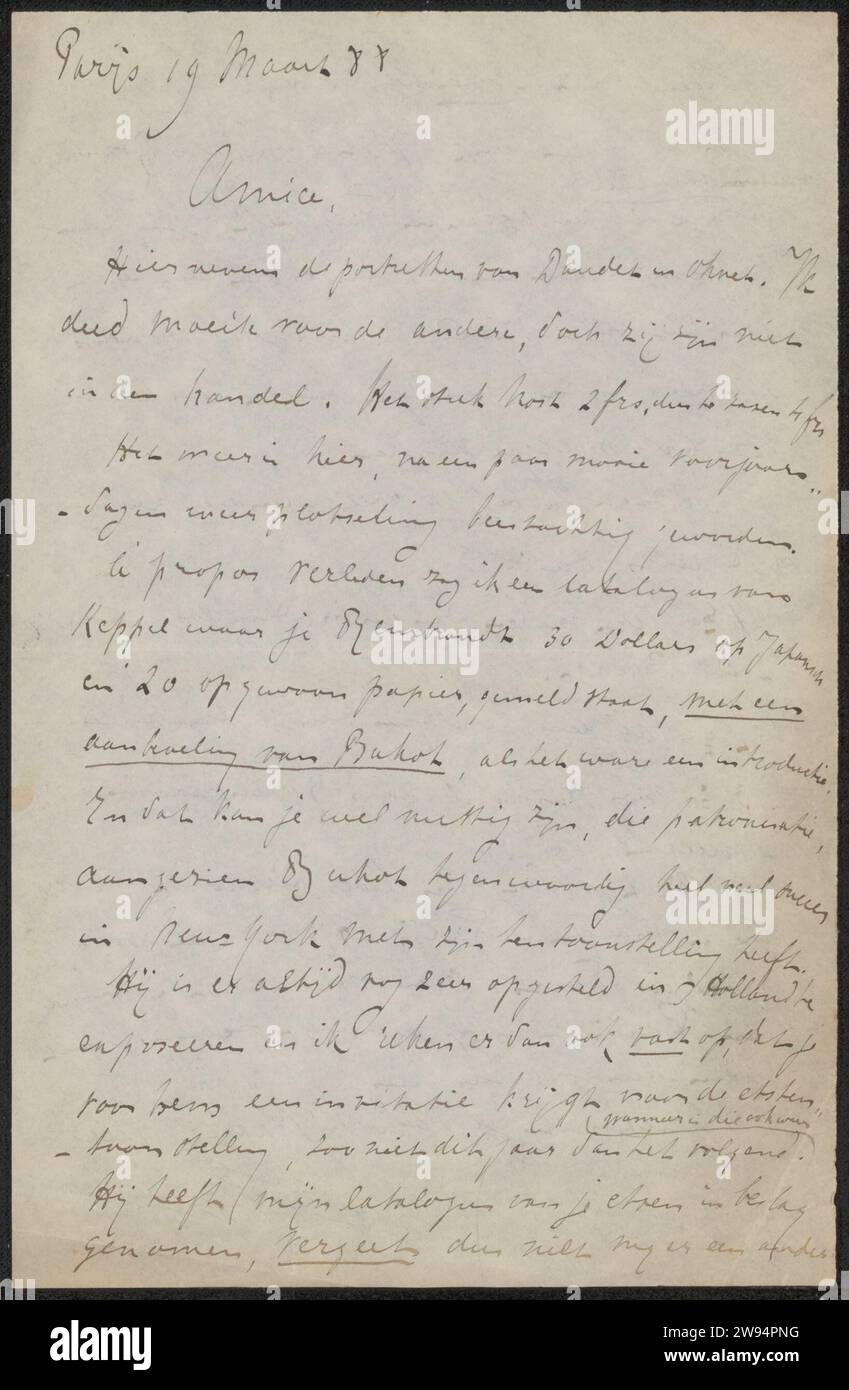 Parijs 19 Maart 88
Amice,
Hiernevens de portretten van Daudet en Ohnet. Ik
deed moeite voor de andere, doch zij zijn niet
in den handel. Het stuk kost 2 frs, dus te zamen 4 frs
Het weer is hier, na een paar mooie voorjaars„
-dagen weer plotseling beestachtig geworden.
à propos verleden zag ik een catalogus van
Keppel waar je Rembrandt 30 Dollars op Japansch
en 20 op gewoon papier, gemeld staat, met een
aanbeveling van Buhot, als het ware een introductie.
En dat kan je wel nuttig zijn, die patronisatie,
aangezien Buhot tegenwoordig heel veel succes
in New-York met zijn tentoonstelling heeft.
Hij is er altijd nog zeer op gesteld in Holland te
exposeeren en ik reken er dan ook vast op, dat je
voor hem een invitatie krijgt voor de etsten„
wanneer is die ook weer
-toonstelling, zoo niet dit jaar dan het volgend.
Hij heeft mijn catalogus van je etsen in beslag
genomen, vergeet dus niet mij er een ander
alamy
alamy
Image ID: 2W94PNG
www.alamy.com